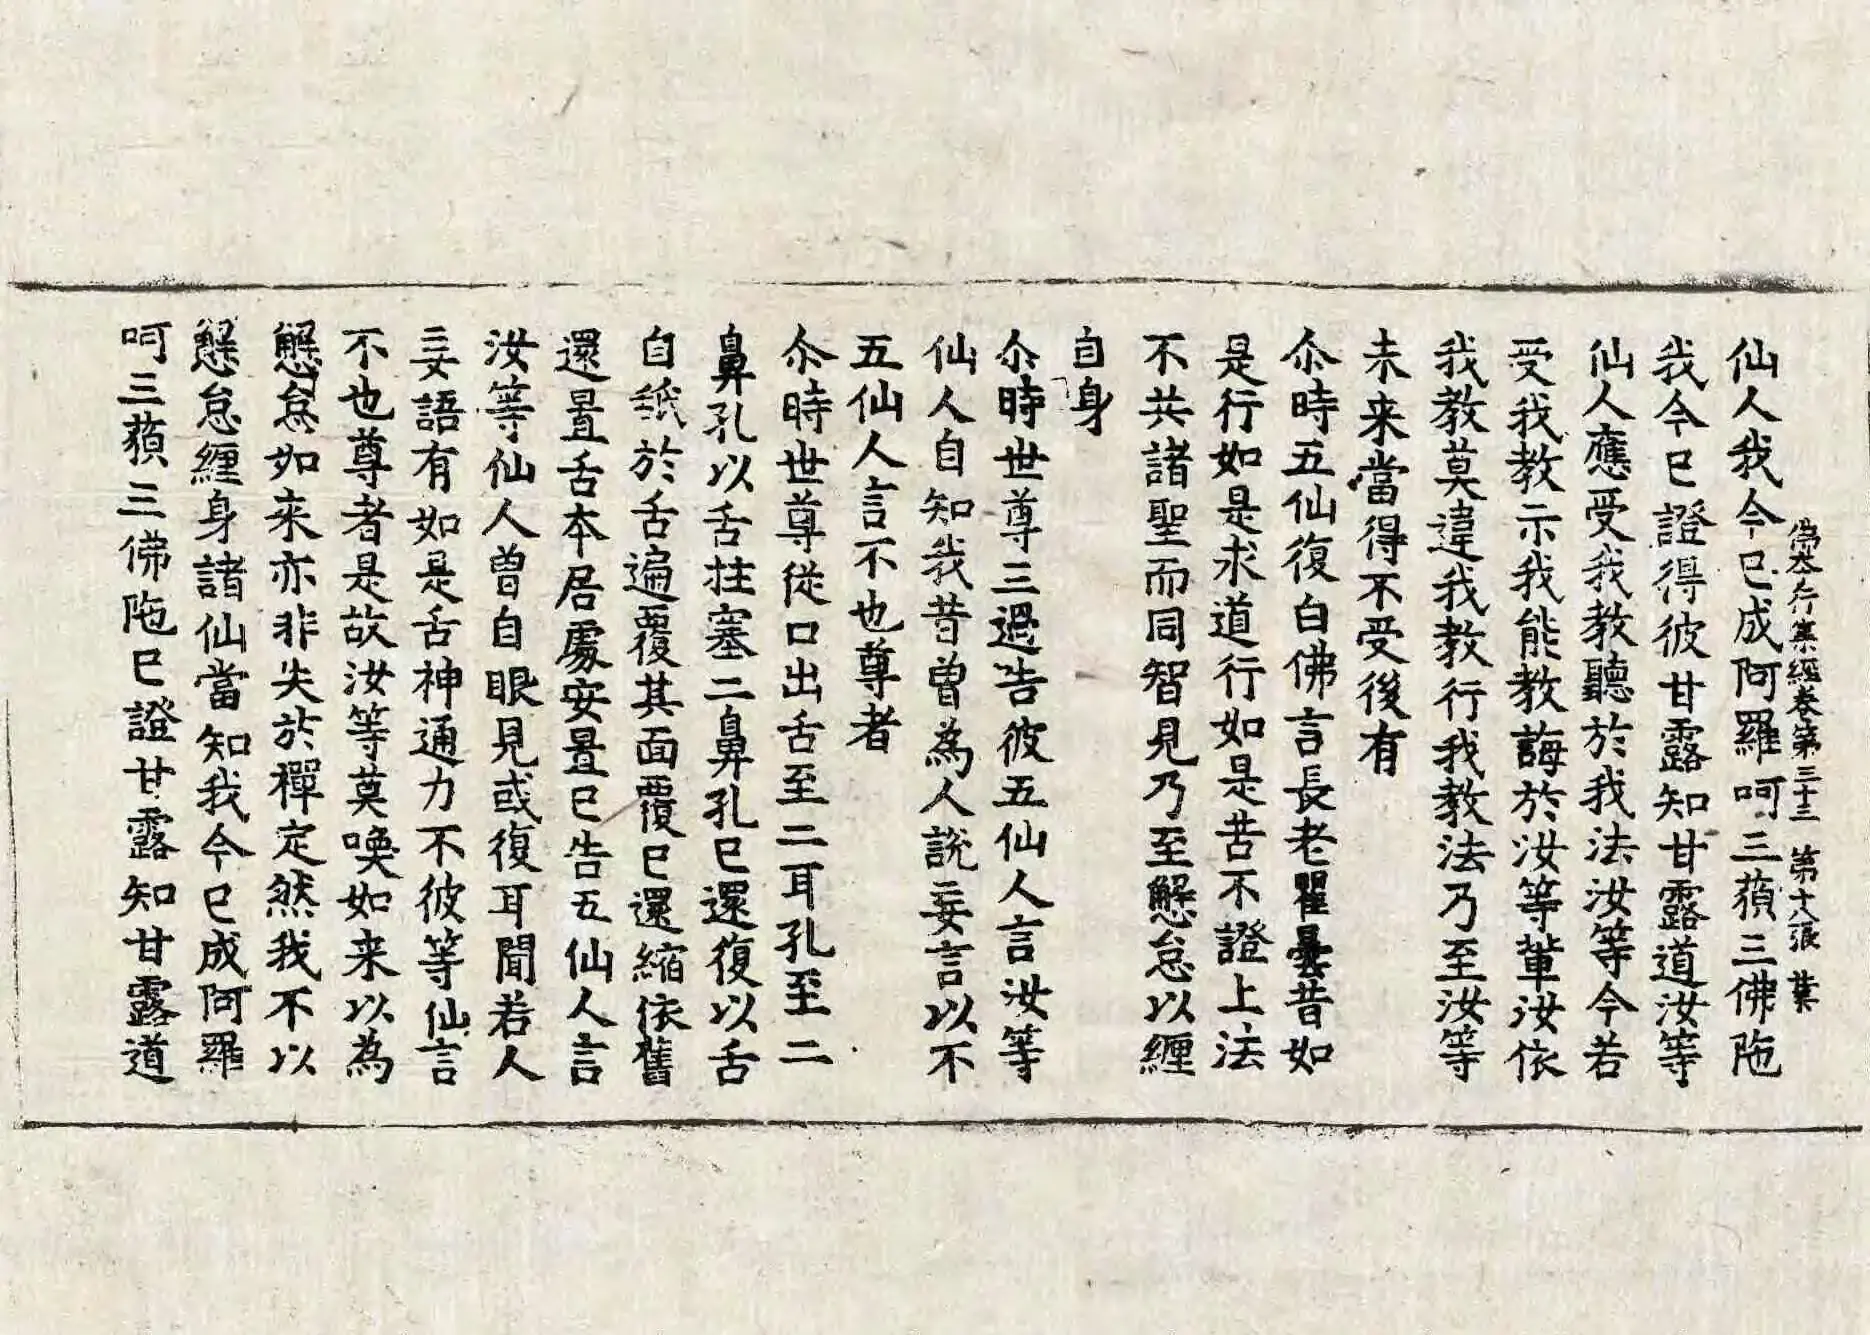 佛本行集經卷第三十三 第十八張 葉
仙人我今已成阿羅呵三藐三佛陁
我今已證得彼甘露知甘露道汝等
仙人應受我教聽於我法汝等今若
受我教示我能教誨於汝等輩汝依
我教莫違我教行我教法乃至汝等
未来當得不受後有
尒時五仙復白佛言長老瞿曇昔如
是行如是求道行如是苦不證上法
不共諸聖而同智見乃至懈怠以纏
自身
尒時世尊三過告彼五仙人言汝等
仙人自知我昔曾為人說妄言以不
五仙人言不也尊者
尒時世尊從口出舌至二耳孔至二
鼻孔以舌拄塞二鼻孔已還復以舌
自舐於舌遍覆其面覆已還縮依舊
還置舌本居處安置已告五仙人言
汝等仙人曾自眼見或復耳聞若人
妄語有如是舌神通力不彼等仙言
不也尊者是故汝等莫喚如来以為
懈怠如来亦非失於禪定然我不以
懈怠纏身諸仙當知我今已成阿羅
呵三藐三佛陁已證甘露知甘露道